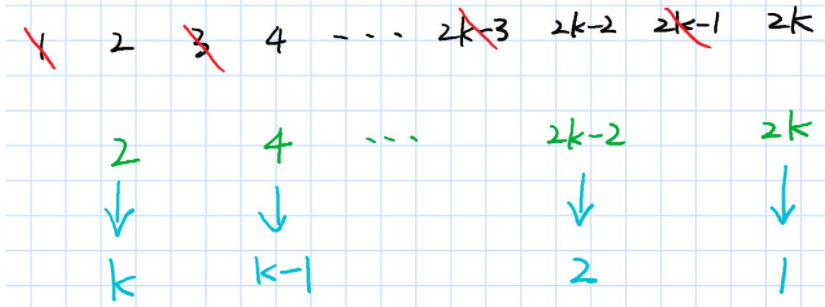 1 2 3 4 --- 2k-3 2k-2 2k-1 2k
2 4 --- 2k-2 2k
k k-1 2 1